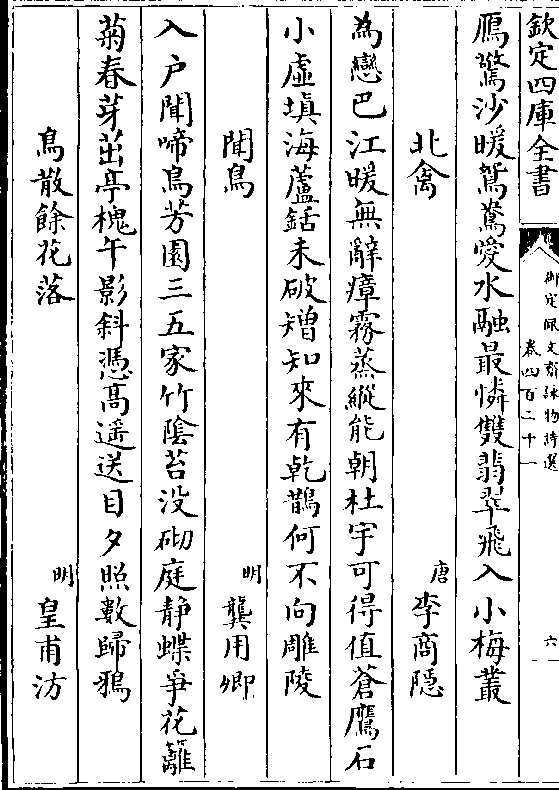 欽定四庫全書
御定佩文齋詠物詩選
卷四百二十一
六
鴈驚沙暖鴛鴦愛水融最憐雙翡翠飛入小梅叢
北禽
唐 李商隠
為戀巴江暖無辭瘴霧蒸縱能朝杜宇可得值蒼鷹石
小虛填海蘆銛未破矰知來有乾鵲何不向雕陵
聞鳥
明 龔用卿
入户聞啼鳥芳園三五家竹陰苔没砌庭静蝶爭花籬
菊春芽茁亭槐午影斜憑髙遥送目夕照數歸鴉
鳥散餘花落
明 皇甫汸